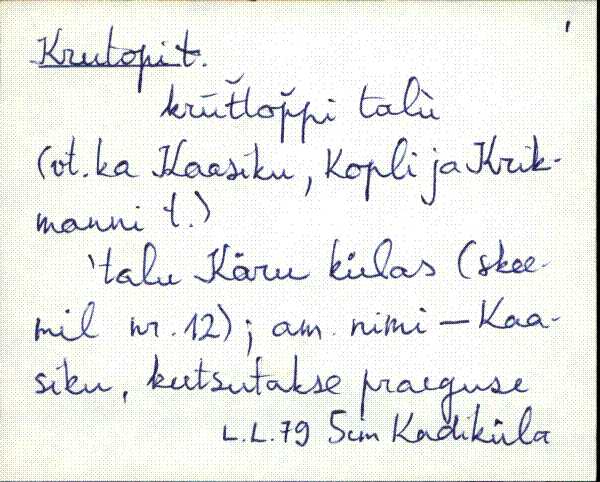 Krutopi t.
krūt̆top̆pi talù
(vt. ka Kaasiku, Kopli ja Krik-
manni t.)
'talu Käru külas (skee-
mil nr. 12); am. nimi — Kaa-
siku, kutsutakse praeguse
L.L. 79 Sim Kadiküla